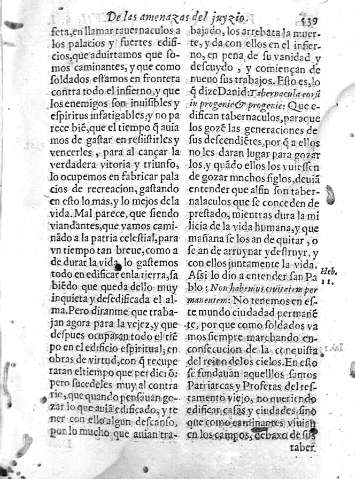 De las amenazas del juyzio.
439
feta, en llamar tauernaculos a
los palacios y fuertes edifi-
cios, que aduirtamos que so-
mos caminantes, y que como
soldados estamos en frontera
contra todo el infierno, y que
los enemigos son inuisibles y
espiritus infatigables, y no pa
rece biē, que el tiempo q̄ auia
mos de gastar en resistirles y
vencerles, para alcançar la
verdadera vitoria y triunfo,
lo ocupemos en fabricar pala
cios de recreacion, gastando
en esto lo mas, y lo mejos dela
vida. Mal parece, que siendo
viandantes, que vamos cami-
nādo a la patria celestial, para
vn tiempo tan breue, como a
de durar la vida, lo gastemos
todo en edificar en la tierra, sa
biēdo que queda dello muy
inquieta y desedificada el al-
ma. Pero diranme que traba-
jan agora para la vejez, y que
despues ocuparan todo el tiē
po en el edificio espiritual, en
obras de virtud, con q̄ recupe
raran el tiempo que perdierō:
pero sucedeles muy al contra
rio, que quando pensauan go-
zar lo que auia edificado, y te
ner con ello algun descanso,
por lo mucho que auian tra-
bajado, los arrebata la muer-
te, y da con ellos en el infier-
no, en pena de su vanidad y
descuydo, y comiençan de
nueuo sus trabajos. Esto es, lo
q̄ dize Dauid: Tabernacula eorū
in progenie & progenie: Que e-
difican tabernaculos, para que
los gozē las generaciones de
sus descendiētes, por q̄ a ellos
no les daran lugar para gozar
los, y quādo ellos los vuiessen
de gozar muchos siglos, deuiā
entender que al fin son taber-
nalaculos que se conceden de
prestado, mientras dura la mi
licia de la vida humana, y que
mañana se los an de quitar, o
se an de arruynar y destruyr, y
con ellos juntamente la vida.
Assi lo dio a entender san Pa
blo: Non habemus ciuitatem per
manentem: No tenemos en es-
te mundo ciudad permanē
te, por que como soldados va
mos siempre marchando en
consecucion de la conquista
del reyno de los cielos. En esto
se fundauan aquellos santos
Patriarcas y Profetas del tes-
tamento viejo, no queriendo
edificar casas y ciudades sino
que como caminantes viuian
en los campos, debaxo de sus
taber.
Heb.
11.